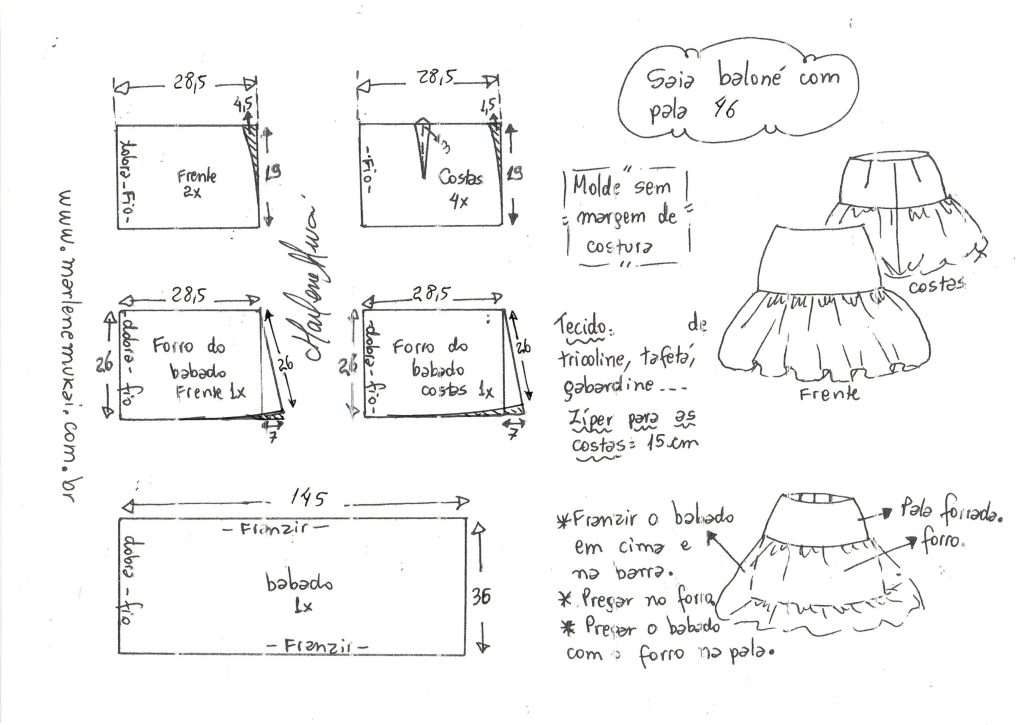 Saia baloné com
pala 46
28,5
4,5
dobra-Fio-
Frente
2x
19
28,5
1,5
3
-Fio-
Costas
4x
19
www.marlenemukai.com.br
Molde sem
margem de
costura
costas
Frente
28,5
26
dobra-fio
Forro do
babado
Frente 1x
26
7
28,5
26
dobra-fio-
Forro do
babado
costas 1x
26
7
Tecido: de
tricoline, tafetá,
gabardine...
Zíper para as
costas = 15 cm
145
- Franzir -
dobra-fio
babado
1x
36
- Franzir -
* Franzir o babado
em cima e
na barra.
* Pregar no forro
* Pregar o babado
com o forro na pala.
Pala forrada.
forro.